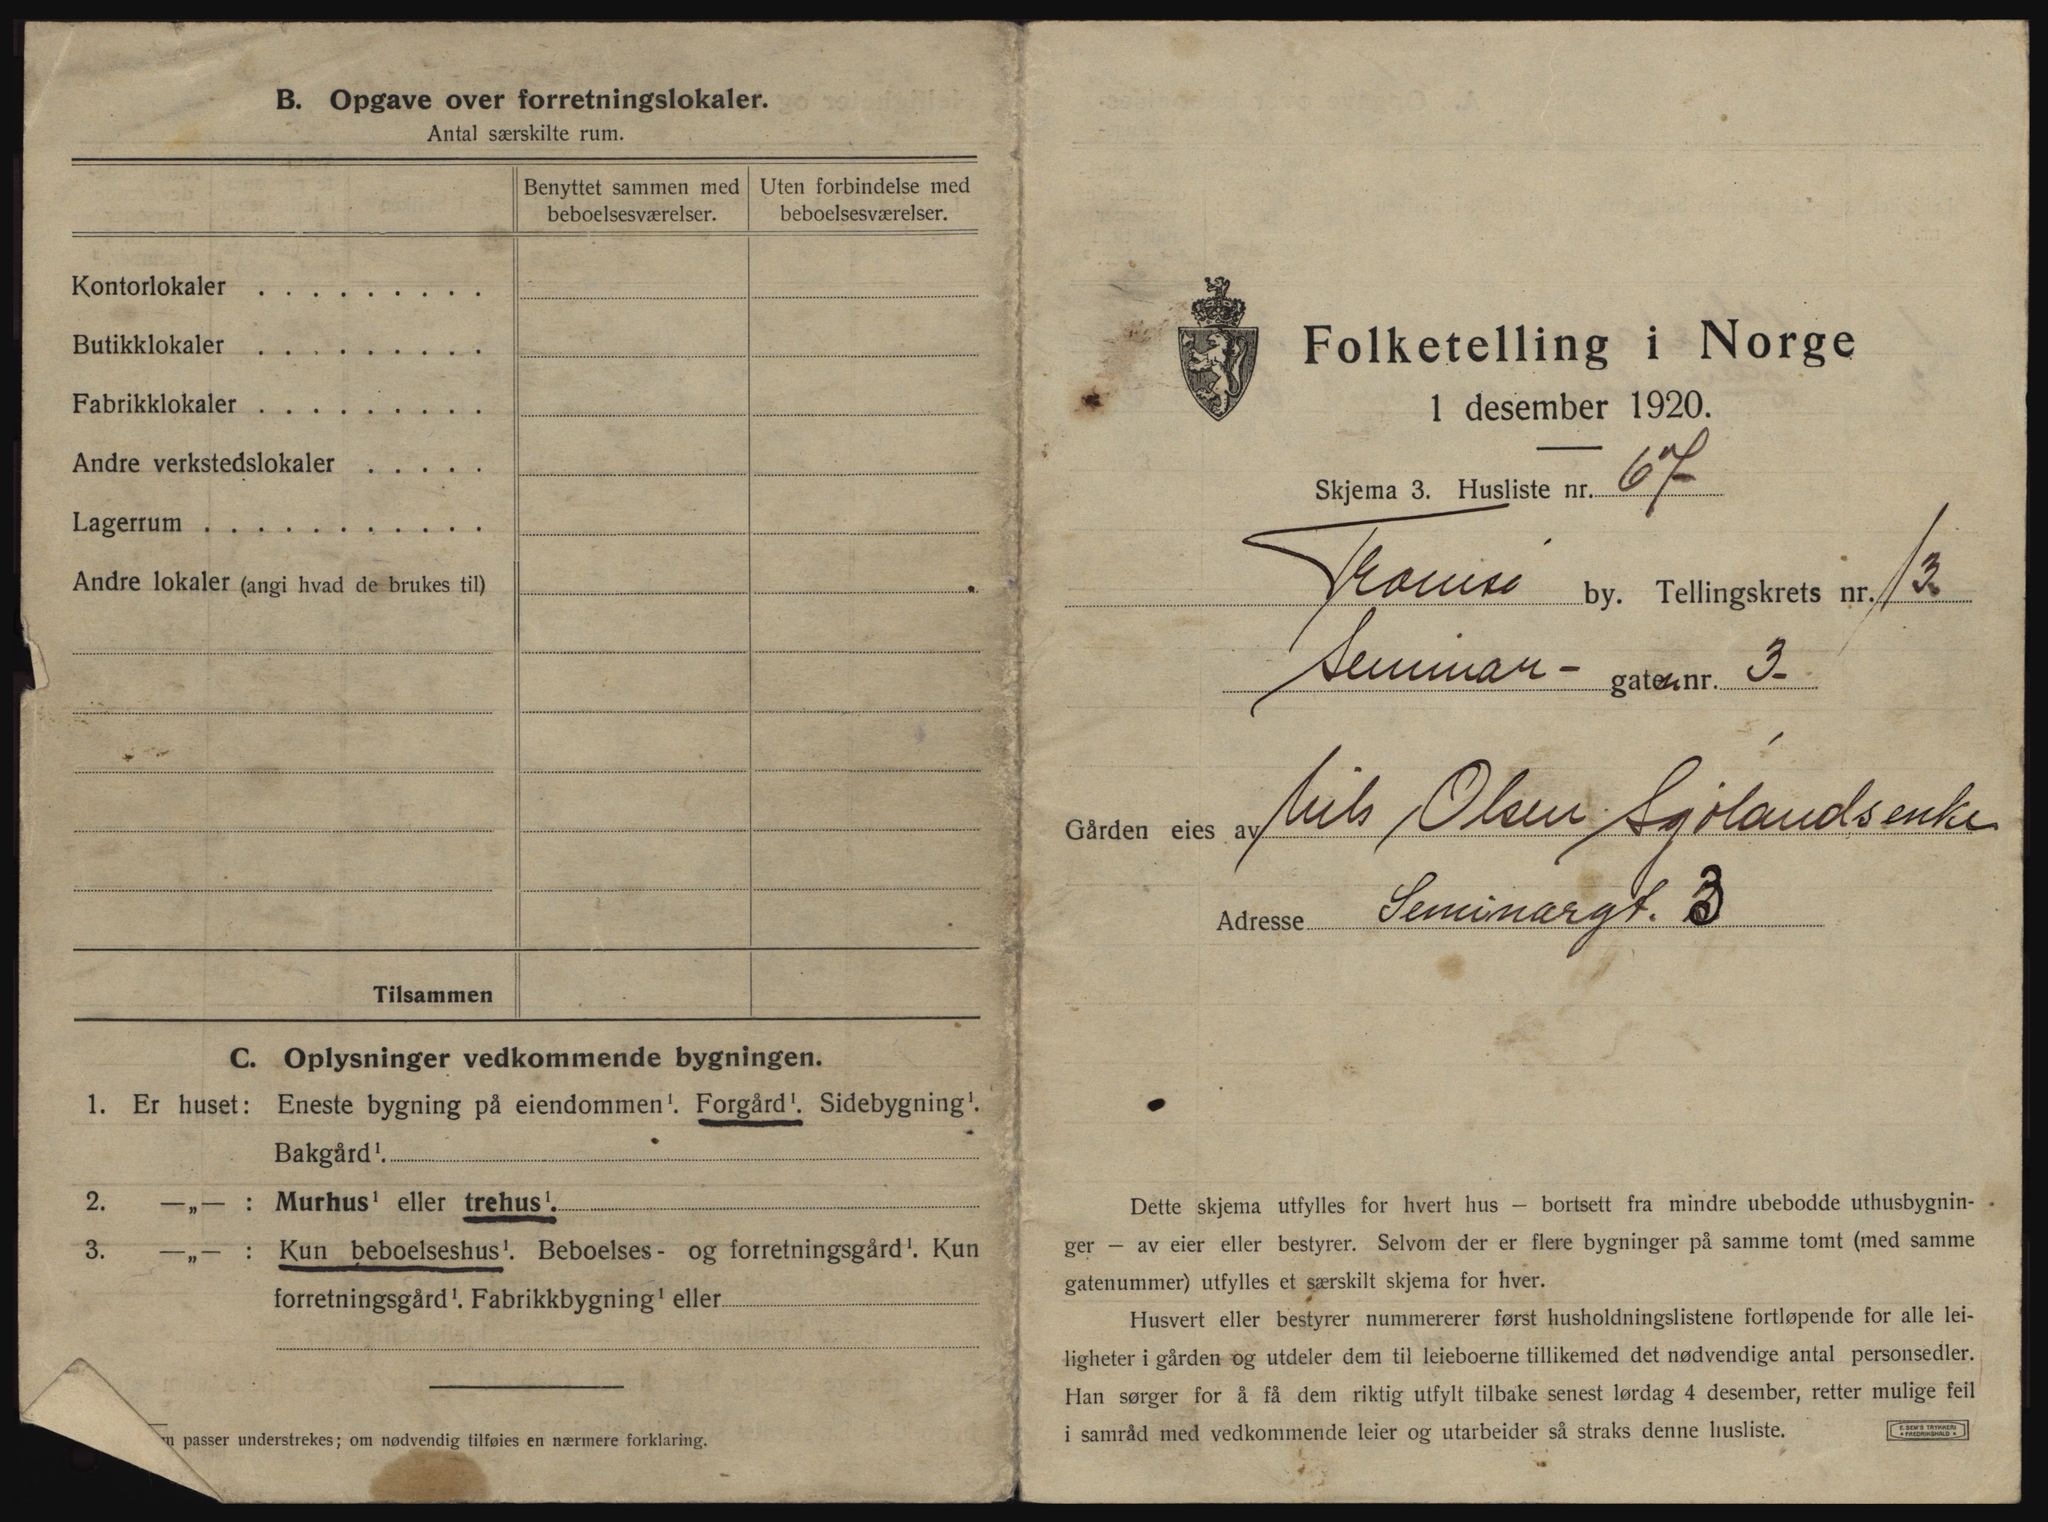 B. Opgave over forretningslokaler.
Antal særskilte rum.
Benyttet sammen med beboelsesværelser.
Uten forbindelse med beboelsesværelser.
Kontorlokaler . . . . . . . . .
Butikklokaler . . . . . . . . .
Fabrikklokaler . . . . . . . . .
Andre verkstedslokaler . . . . .
Lagerrum . . . . . . . . . . .
Andre lokaler (angi hvad de brukes til)
Tilsammen
C. Oplysninger vedkommende bygningen.
1. Er huset: Eneste bygning på eiendommen¹. Forgård¹. Sidebygning¹.
Bakgård¹.
2. —„— : Murhus¹ eller trehus¹.
3. —„— : Kun beboelseshus¹. Beboelses- og forretningsgård¹. Kun
forretningsgård¹. Fabrikkbygning¹ eller
passer understrekes; om nødvendig tilføies en nærmere forklaring.
Folketelling i Norge
1 desember 1920.
Skjema 3. Husliste nr. 67
Tromsö by. Tellingskrets nr. 13
Seminar- gaten nr. 3
Gården eies av Nils Olsen Sjölandsenke
Adresse Seminargt. 3
Dette skjema utfylles for hvert hus — bortsett fra mindre ubebodde uthusbygnin-
ger — av eier eller bestyrer. Selvom der er flere bygninger på samme tomt (med samme
gatenummer) utfylles et særskilt skjema for hver.
Husvert eller bestyrer nummererer først husholdningslistene fortløpende for alle lei-
ligheter i gården og utdeler dem til leieboerne tillikemed det nødvendige antal personsedler.
Han sørger for å få dem riktig utfylt tilbake senest lørdag 4 desember, retter mulige feil
i samråd med vedkommende leier og utarbeider så straks denne husliste.
E. SEM'S TRYKKERI
FREDRIKSHALD